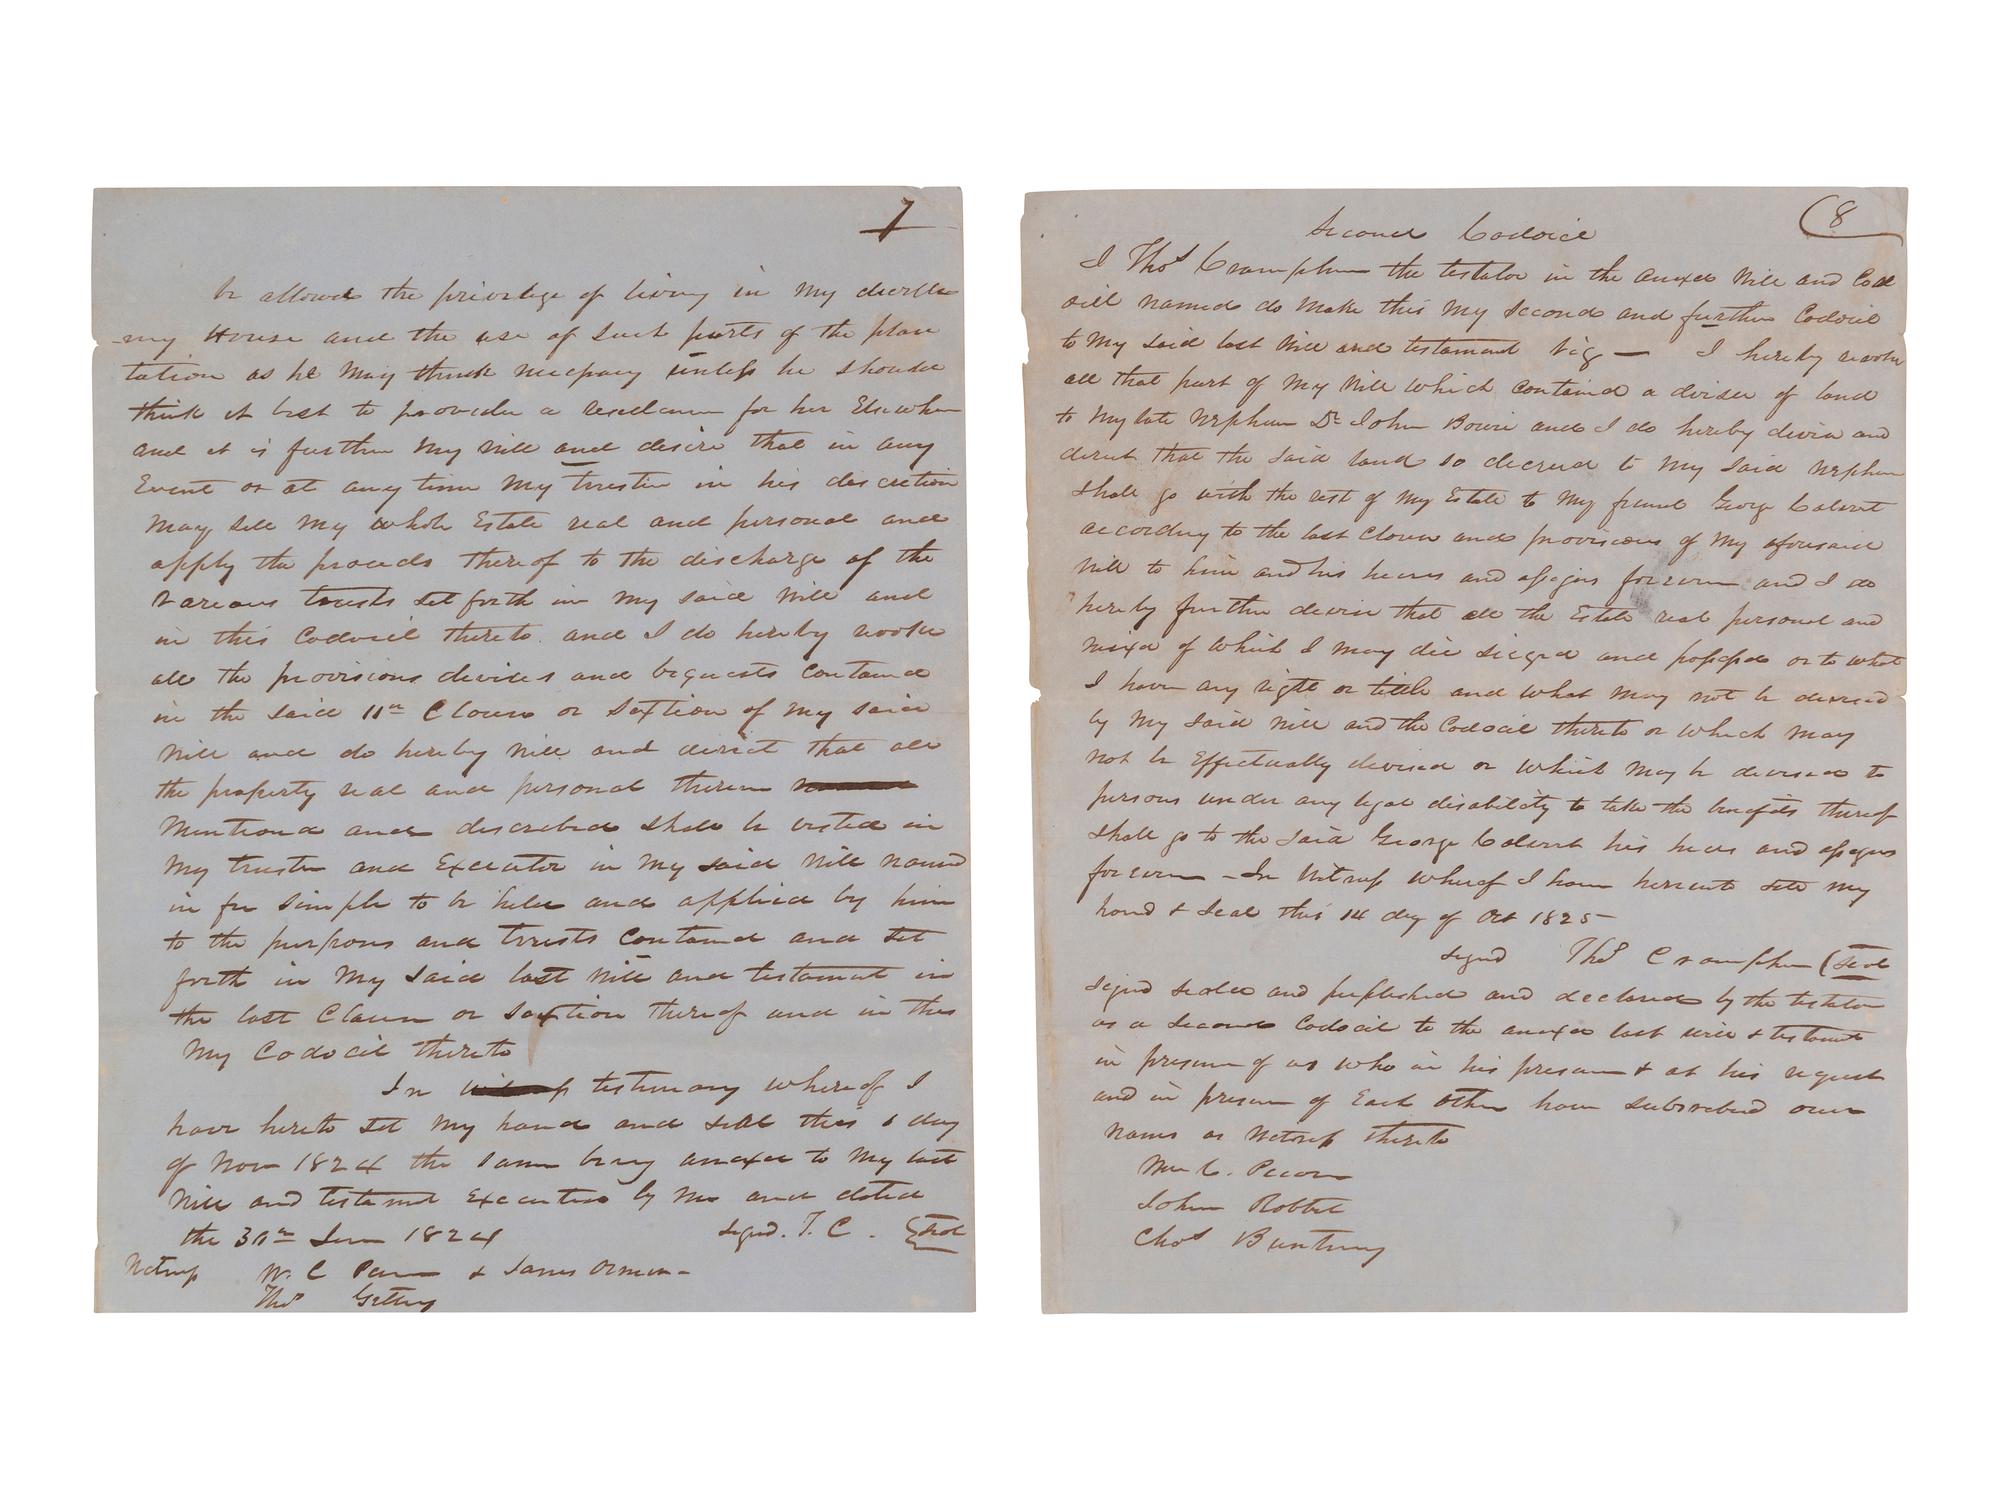 7
be allowed the priviledge of living in my dwelle
my House and the use of such parts of the plan
tation as he may think necessary unless he should
think it best to provide a residence for her Elsewhere
and it is further my will and desire that in any
Event or at any time my trustee in his discretion
may sell my whole Estate real and personal and
apply the proceeds thereof to the discharge of the
vareous trusts set forth in my said will and
in this Codocil thereto and I do hereby revoke
all the provisions devises and bequests contained
in the said 11th Clause or Section of my said
will and do hereby will and direct that all
the property real and personal therein
mentioned and described shall be vested in
my trustee and Executor in my said will named
in fee simple to be held and applied by him
to the purposes and trusts contained and set
forth in my said last will and testament in
the last Clause or Section thereof and in this
my Codocil thereto
In testimony whereof I
have hereto set my hand and seal this 6 day
of Nov 1824 the same being anexed to my last
will and testament Executed by me and dated
the 30th June 1824 signd. T. C. Seal
Witness W. C. & James Orme
Thos Gettings
(8
Second Codocil
I Thos Cramphin the testator in the anexed will and Cod
ocill named do make this my second and further Codocil
to my said last will and testament viz — I hereby revoke
all that part of my will which contained a devise of land
to my late nephew Dr John Bowie and I do hereby devise and
direct that the said land so decreed to my said nephew
shall go with the rest of my Estate to my friend George Calvert
according to the last clause and provisions of my aforesaid
will to him and his heirs and assigns forever and I do
hereby further devise that all the Estate real personal and
mixed of which I may die siezed and possessed or to what
I have any right or tittle and what may not be devised
by my said will and the Codocil thereto or which may
not be Effectually devised or which may be devised to
persons under any legal disability to take the benefits thereof
shall go to the said George Calvert his heirs and assigns
forever — In Witness whereof I have hereunto sett my
hand & seal this 14 day of Oct 1825
signed Thos Cramphin (Seal
signed sealed and published and declared by the testator
as a second Codocil to the anexed last will & testament
in presence of us who in his presence & at his request
and in presence of Each other have subscribed our
names as Witness thereto
Wm C.
John Robbel
Chas Bunting